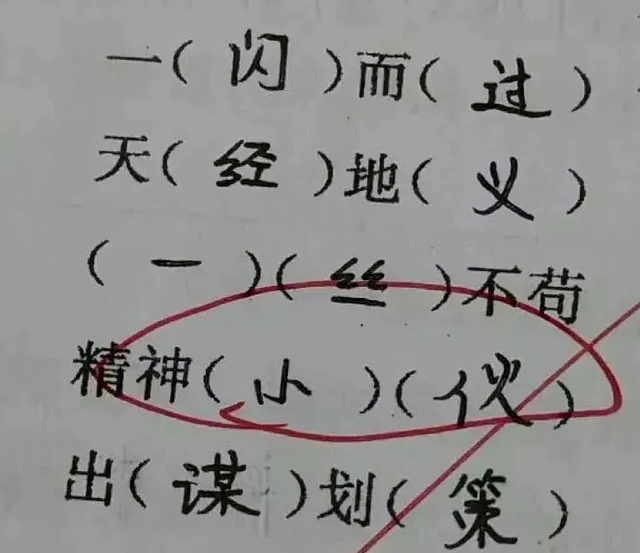 一( 闪 )而( 过 )
天( 经 )地( 义 )
( 一 )( 丝 )不苟
精神( 小 )( 伙 )
出( 谋 )划( 策 )